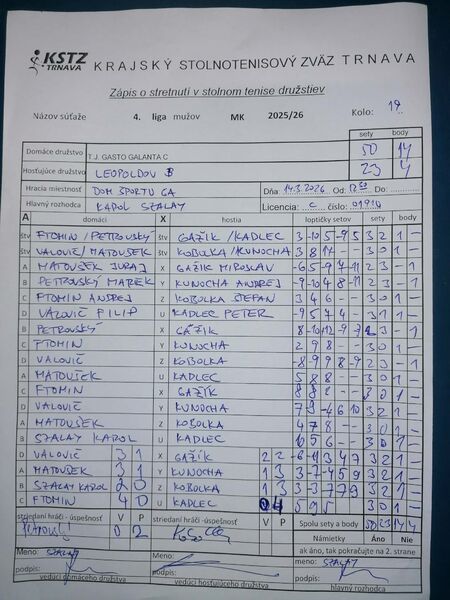 KSTZ
TRNAVA
KRAJSKÝ STOLNOTENISOVÝ ZVÄZ TRNAVA
Zápis o stretnutí v stolnom tenise družstiev
Názov súťaže 4. liga mužov MK 2025/26 Kolo: 19
sety body
Domáce družstvo T.J. GASTO GALANTA C 50 14
Hosťujúce družstvo LEOPOLDOV B 23 4
Hracia miestnosť DOM ŠPORTU GA Dňa: 14.3.2026 Od: Do:
Hlavný rozhodca KAROL SZALAY Licencia: C číslo: 01910
A domáci X hostia loptičky setov sety body
štv FTOMIN/PETROVSKÝ štv GAŽÍK/KADLEC 3 -10 5 -9 5 3 2 1 -
štv VALOVIČ/MATOUŠEK štv KOBOLKA/KUNOCHA 3 8 - - 3 0 1 -
A MATOUŠEK JURAJ X GAŽÍK MIROSLAV -6 5 -9 7 -11 2 3 - 1
B PETROVSKÝ MAREK Y KUNOCHA ANDREJ -9 10 4 8 -11 2 3 - 1
C FTOMIN ANDREJ Z KOBOLKA ŠTEFAN 3 4 6 - - 3 0 1 -
D VALOVIČ FILIP U KADLEC PETER -9 5 7 4 - 3 1 1 -
B PETROVSKÝ X GAŽÍK 8 -10 12 -9 -7 2 3 - 1
C FTOMIN Y KUNOCHA 2 9 8 - - 3 0 1 -
D VALOVIČ Z KOBOLKA -8 -9 9 8 -9 2 3 - 1
A MATOUŠEK U KADLEC 5 8 8 - - 3 0 1 -
C FTOMIN X GAŽÍK 8 8 2 - - 3 0 1 -
D VALOVIČ Y KUNOCHA 7 9 -4 -6 10 3 2 1 -
A MATOUŠEK Z KOBOLKA 4 7 8 - - 3 0 1 -
B SZALAY KAROL U KADLEC 10 5 6 - - 3 0 1 -
D VALOVIČ 3 1 X GAŽÍK 2 2 -6 -11 3 4 7 3 2 1 -
A MATOUŠEK 3 1 Y KUNOCHA 1 3 3 -7 -4 5 9 3 2 1 -
B SZALAY KAROL 2 0 Z KOBOLKA 1 3 3 -3 7 7 9 3 2 1 -
C FTOMIN 4 0 U KADLEC 0 4 5 9 5 3 0 1 -
striedaní hráči - úspešnosť V P striedaní hráči - úspešnosť V P Spolu sety a body 50 23 14 4
0 2 Námietky Áno Nie
ak áno, tak pokračujte na 2. strane
Meno: SZALAY Meno: Meno: SZALAY
podpis: podpis: podpis:
vedúci domáceho družstva vedúci hosťujúceho družstva hlavný rozhodca